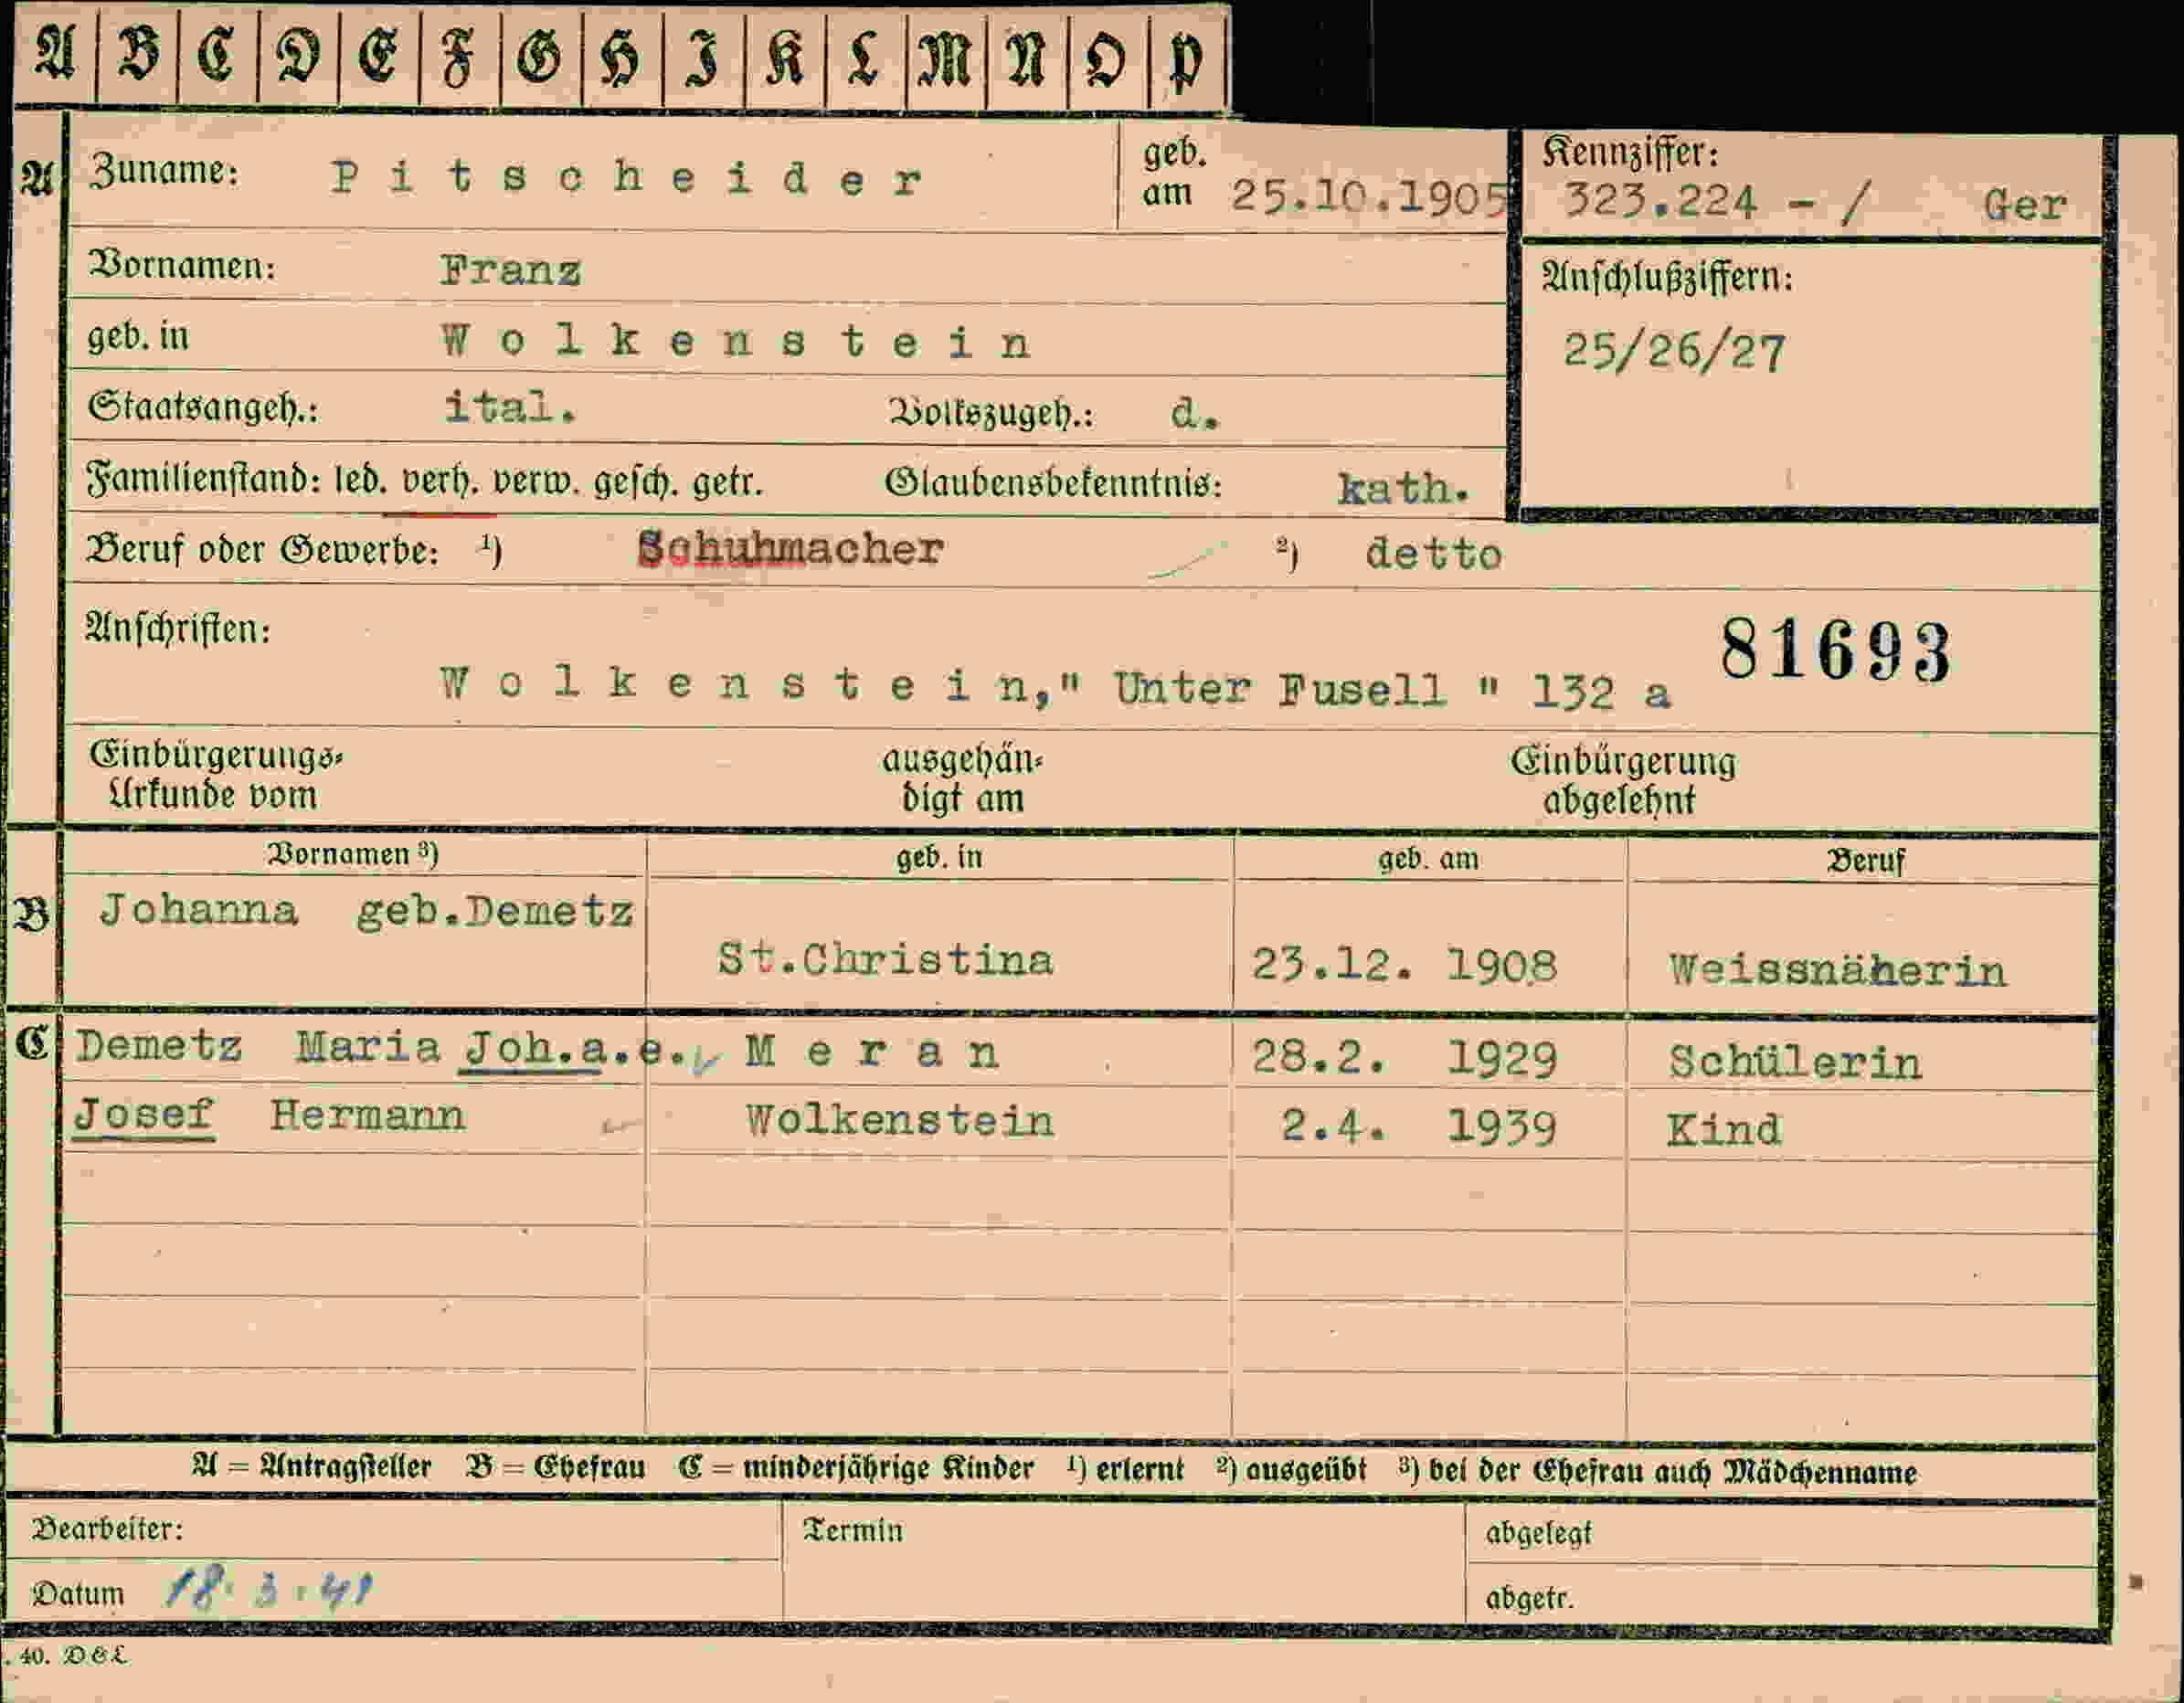 A B C D E F G H I K L M N O P
A Zuname: Pitscheider geb. am 25.10.1905 Kennziffer: 323.224 - / Ger
Vornamen: Franz
Anschlußziffern:
geb. in Wolkenstein 25/26/27
Staatsangeh.: ital. Volkszugeh.: d.
Familienstand: led. verh. verw. gesch. getr. Glaubensbekenntnis: kath.
Beruf oder Gewerbe: ¹) Schuhmacher ²) detto
Anschriften: 81693
Wolkenstein," Unter Fusell " 132 a
Einbürgerungs- ausgehän- Einbürgerung
Urkunde vom digt am abgelehnt
Vornamen ³) geb. in geb. am Beruf
B Johanna geb.Demetz
St.Christina 23.12. 1908 Weissnäherin
C Demetz Maria Joh.a.e. Meran 28.2. 1929 Schülerin
Josef Hermann Wolkenstein 2.4. 1939 Kind
A = Antragsteller B = Ehefrau C = minderjährige Kinder ¹) erlernt ²) ausgeübt ³) bei der Ehefrau auch Mädchenname
Bearbeiter: Termin abgelegt
Datum 18.3.41 abgetr.
. 40. D & L